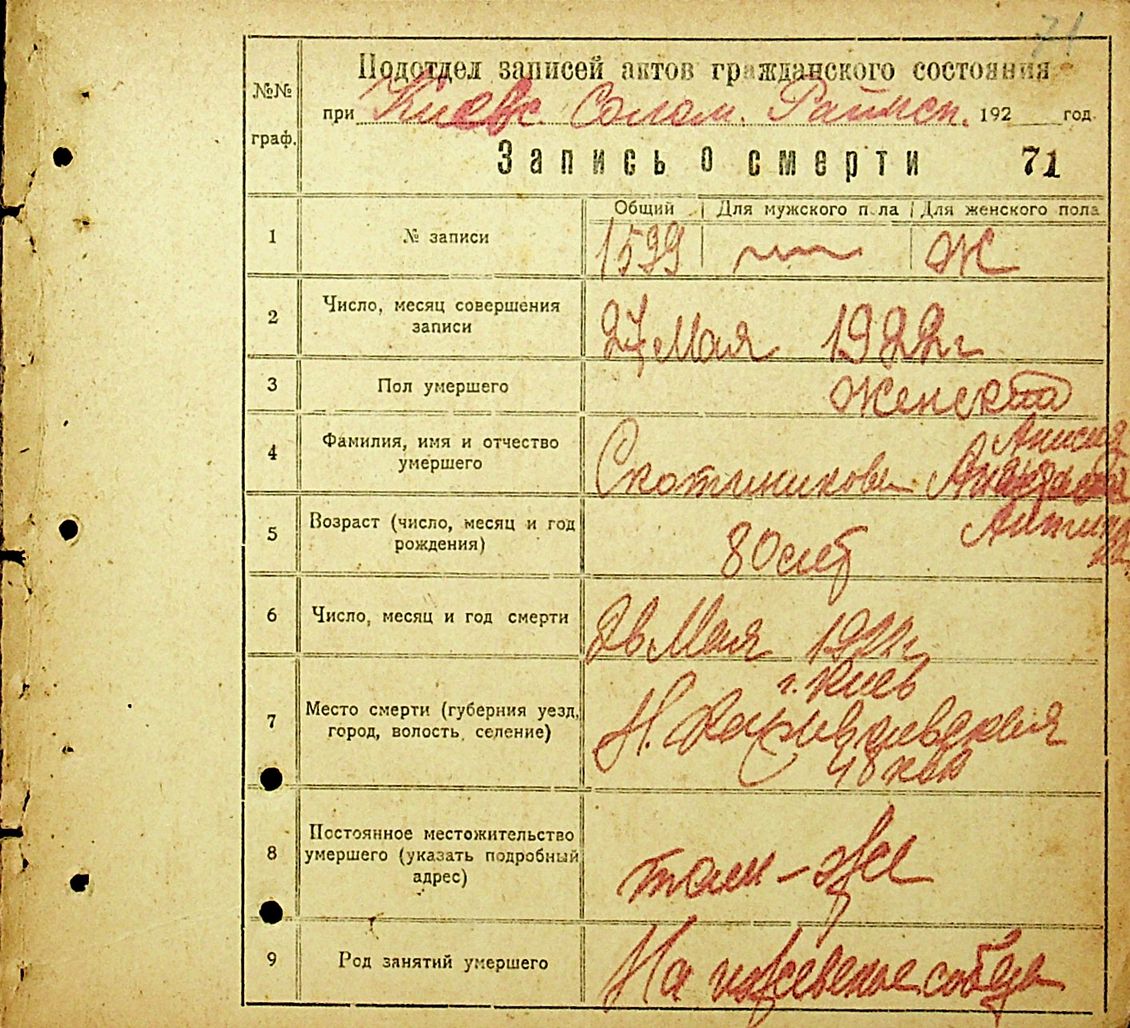 71
Подотдел записей актов гражданского состояния
при Киевс. Солом. Райисп. 192 год.
№№ граф.
Запись о смерти 71
Общий Для мужского пола Для женского пола
1 № записи 1599 — Ж
2 Число, месяц совершения
записи
27 Мая 1922 г
3 Пол умершего Женский
4 Фамилия, имя и отчество
умершего
Анисия
Скотникова
5 Возраст (число, месяц и год
рождения)
80 лет
6 Число, месяц и год смерти 26 Мая 1922 г
7 Место смерти (губерния уезд,
город, волость, селение)
г. Киев
Н.
48 кв
8 Постоянное местожительство
умершего (указать подробный
адрес)
там-же
9 Род занятий умершего На